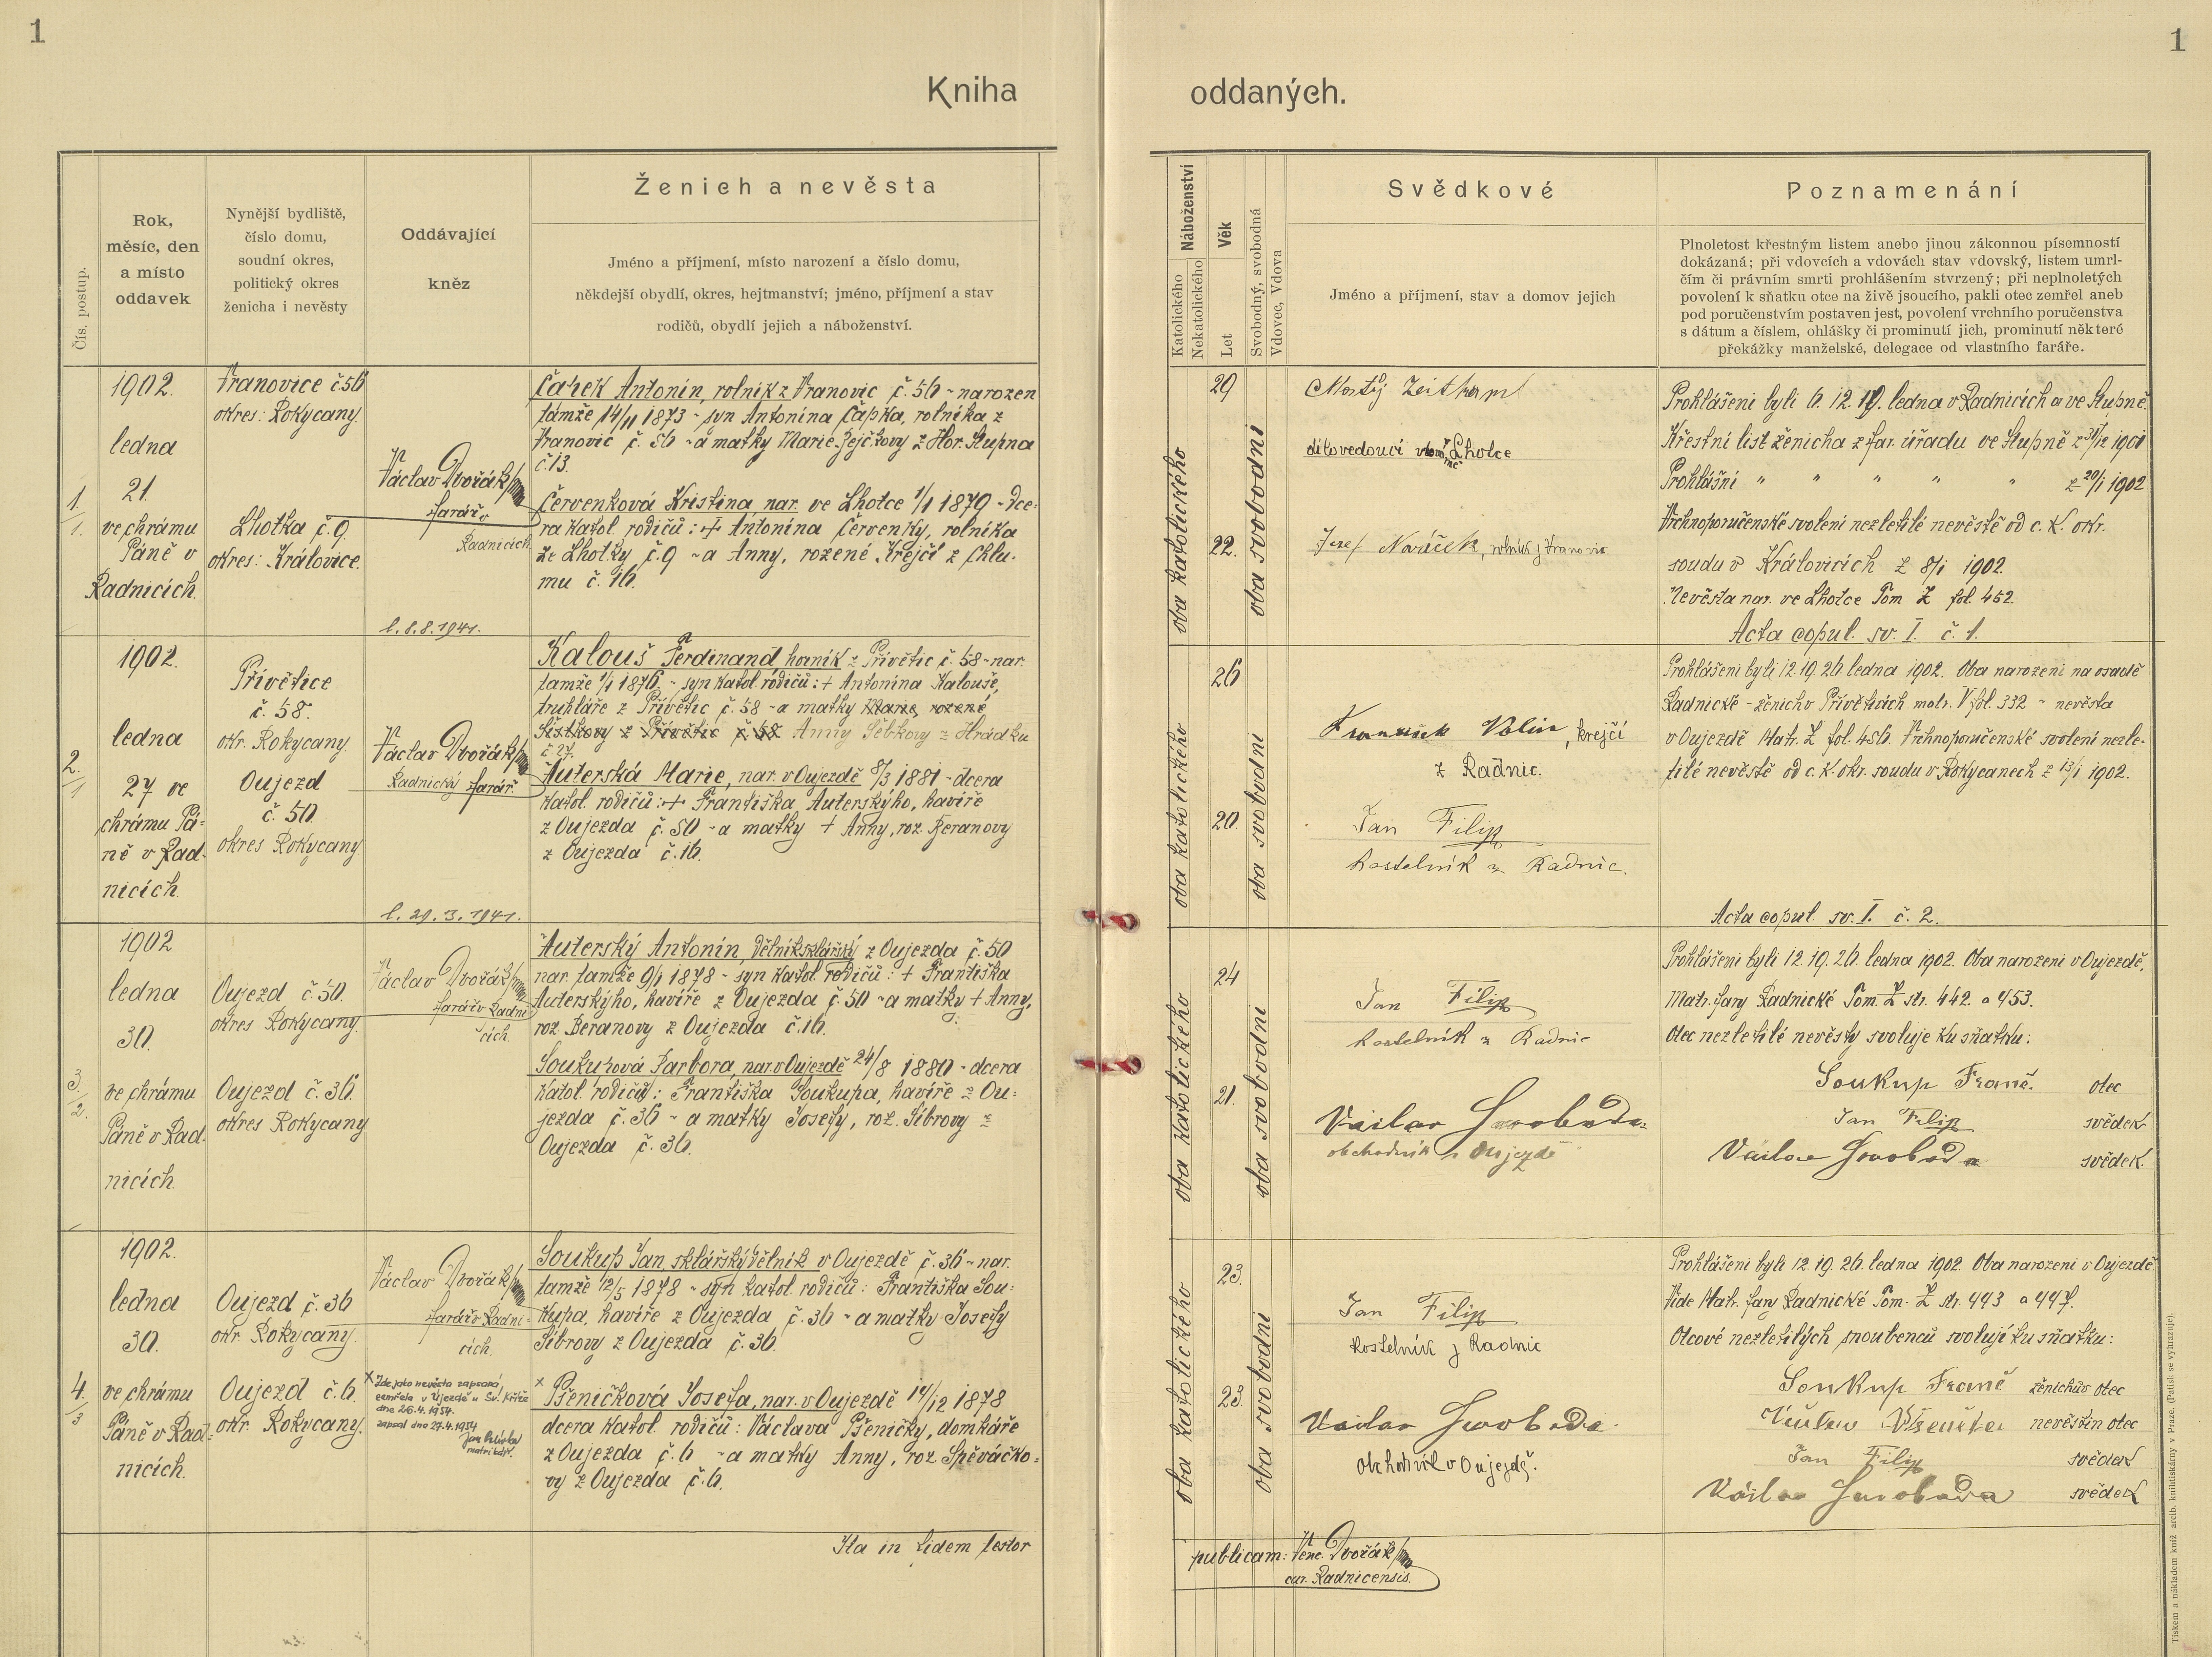 1
1
Kniha
oddaných.
Čís. postup.
Rok,
měsíc, den
a místo
oddavek
Nynější bydliště,
číslo domu,
soudní okres,
politický okres
ženicha i nevěsty
Oddávající
kněz
Ženich a nevěsta
Jméno a příjmení, místo narození a číslo domu,
někdejší obydlí, okres, hejtmanství; jméno, příjmení a stav
rodičů, obydlí jejich a náboženství.
Náboženství
Katolického
Nekatolického
Věk
Let
Svobodný, svobodná
Vdovec, Vdova
Svědkové
Jméno a příjmení, stav a domov jejich
Poznamenání
Plnoletost křestným listem anebo jinou zákonnou písemností
dokázaná; při vdovcích a vdovách stav vdovský, listem umrl-
čím či právním smrti prohlášením stvrzený; při neplnoletých
povolení k sňatku otce na živě jsoucího, pakli otec zemřel aneb
pod poručenstvím postaven jest, povolení vrchního poručenstva
s dátum a číslem, ohlášky či prominutí jich, prominutí některé
překážky manželské, delegace od vlastního faráře.
1.
1.
1902.
ledna
21.
ve chrámu
Páně v
Radnicích.
Vranovice č.56
okres: Rokycany.
Lhotka č.9.
okres: Kralovice.
Václav Dvořák
farář v
Radnicích
Čapek Antonín, rolník z Vranovic č. 56 - narozen
tamže 14/11 1873 - syn Antonína Čapka, rolníka z
Vranovic č. 56 - a matky Marie Rejčkovy z Hor. Stupna
č.13.
Červenková Kristina, nar. ve Lhotce 1/1 1879 - dce-
ra katol. rodičů: + Antonína Červenky, rolníka
ze Lhotky č.9 - a Anny, rozené Krejčí z Chlu-
mu č. 16.
oba katolického
29
22.
oba svobodni
Matěj Zeithaml
dílovedoucí ve Lhotce
Josef Nováček, rolník z Vranovic.
Prohlášeni byli 6. 12. 19. ledna v Radnicích a ve Stupně.
Křestní list ženicha z far. úřadu ve Stupně z 31/12 1901
Prohlášní " " " " " z 20/1 1902
Vrchnoporučenské svolení nezletilé nevěstě od c. k. okr.
soudu v Kralovicích z 8/1 1902.
Nevěsta nar. ve Lhotce Tom Z fol. 452.
Acta copul. sv. I. č. 1.
2.
1
1902.
ledna
27 ve
chrámu Pá-
ně v Rad-
nicích.
Přívětice
č. 58.
okr. Rokycany.
Oujezd
č. 50.
okres Rokycany
l. 8.8.1941.
Václav Dvořák
Radnický farář.
Kalouš Ferdinand, horník z Přívětic č. 58 - nar.
tamže 1/1 1876. - syn katol. rodičů: + Antonína Kalouše,
truhláře z Přívětic č. 58 - a matky Marie, rozené
Šístkovy z Přívětic č. 58 Anny Šebkovy z Hrádku
č 27.
Auterská Marie, nar. v Oujezdě 8/3 1881 - dcera
katol. rodičů: + Františka Auterskýho, havíře
z Oujezda č. 50 - a matky + Anny, roz. Beranovy
z Oujezda č. 16.
oba katolického
26
20.
oba svobodni
František Volín, krejčí
z Radnic.
Jan Filip
kostelník z Radnic.
Prohlášeni byli 12. 19. 26. ledna 1902. Oba narozeni na osadě
Radnické - ženich v Přívěticích matr. V fol. 332 - nevěsta
v Oujezdě Matr. Z fol. 456. Vrchnoporučenské svolení nezle-
tilé nevěstě od c. k. okr. soudu v Rokycanech z 13/1 1902.
Acta copul sv. I. č. 2.
3.
2.
1902
ledna
30.
ve chrámu
Páně v Rad-
nicích.
Oujezd č. 50.
okres Rokycany.
Oujezd č. 36.
okres Rokycany
l. 29. 3. 1941.
Václav Dvořák
farář v Radni-
cích.
Auterský Antonín, dělník sklářský z Oujezda č. 50
nar. tamže 9/1 1878 - syn katol. rodičů: + Františka
Auterskýho, havíře z Oujezda č. 50 - a matky + Anny,
roz. Beranovy z Oujezda č. 16.
Soukupová Barbora, nar. v Oujezdě 24/8 1880 - dcera
katol. rodičů: Františka Soukupa, havíře z Ou-
jezda č. 36 - a matky Josefy, roz. Šibrovy z
Oujezda č. 36.
oba katolického
24
21.
oba svobodni
Jan Filip
kostelník z Radnic
Václav Svoboda
obchodník v Oujezdě
Prohlášeni byli 12. 19. 26. ledna 1902. Oba narozeni v Oujezdě,
Matr. fary Radnické Tom. Z str. 442. a 453.
Otec nezletilé nevěsty svoluje ku sňatku:
Soukup Franč. otec
Jan Filip svědek
Václav Svoboda svědek.
4.
3
1902.
ledna
30.
ve chrámu
Páně v Rad-
nicích.
Oujezd č. 36
okr. Rokycany.
Oujezd č. 6.
okr. Rokycany.
Václav Dvořák
farář v Radni-
cích.
x Zde jako nevěsta zapsaná
zemřela v Újezdě u Sv. Kříže
dne 26.4.1954.
zapsal dne 27.4.1954
matrikář.
Soukup Jan, sklářský dělník v Oujezdě č. 36 - nar.
tamže 12/5 1878 - syn katol. rodičů: Františka Sou-
kupa, havíře z Oujezda č. 36 - a matky Josefy
Šibrovy z Oujezda č. 36.
x Pšeničková Josefa, nar. v Oujezdě 14/12 1878
dcera katol. rodičů: Václava Pšeničky, domkáře
z Oujezda č. 6 - a matky Anny, roz. Spěváčko-
vy z Oujezda č. 6.
oba katolického
23.
23.
oba svobodni
Jan Filip
kostelník z Radnic
Václav Svoboda
Obchodník v Oujezdě.
Prohlášeni byli 12. 19. 26. ledna 1902. Oba narozeni v Oujezdě
Vide Matr. fary Radnické Tom. Z str. 443 a 447.
Otcové nezletilých snoubenců svolují ku sňatku:
Soukup Franč ženichův otec
Václav Pšenička nevěstin otec
Jan Filip svědek
Václav Svoboda svědek
Ita in fidem testor
publicam: Venc. Dvořák
cur. Radnicensis.
Tiskem a nákladem kníž. arcib. knihtiskárny v Praze. (Patisk se vyhrazuje).